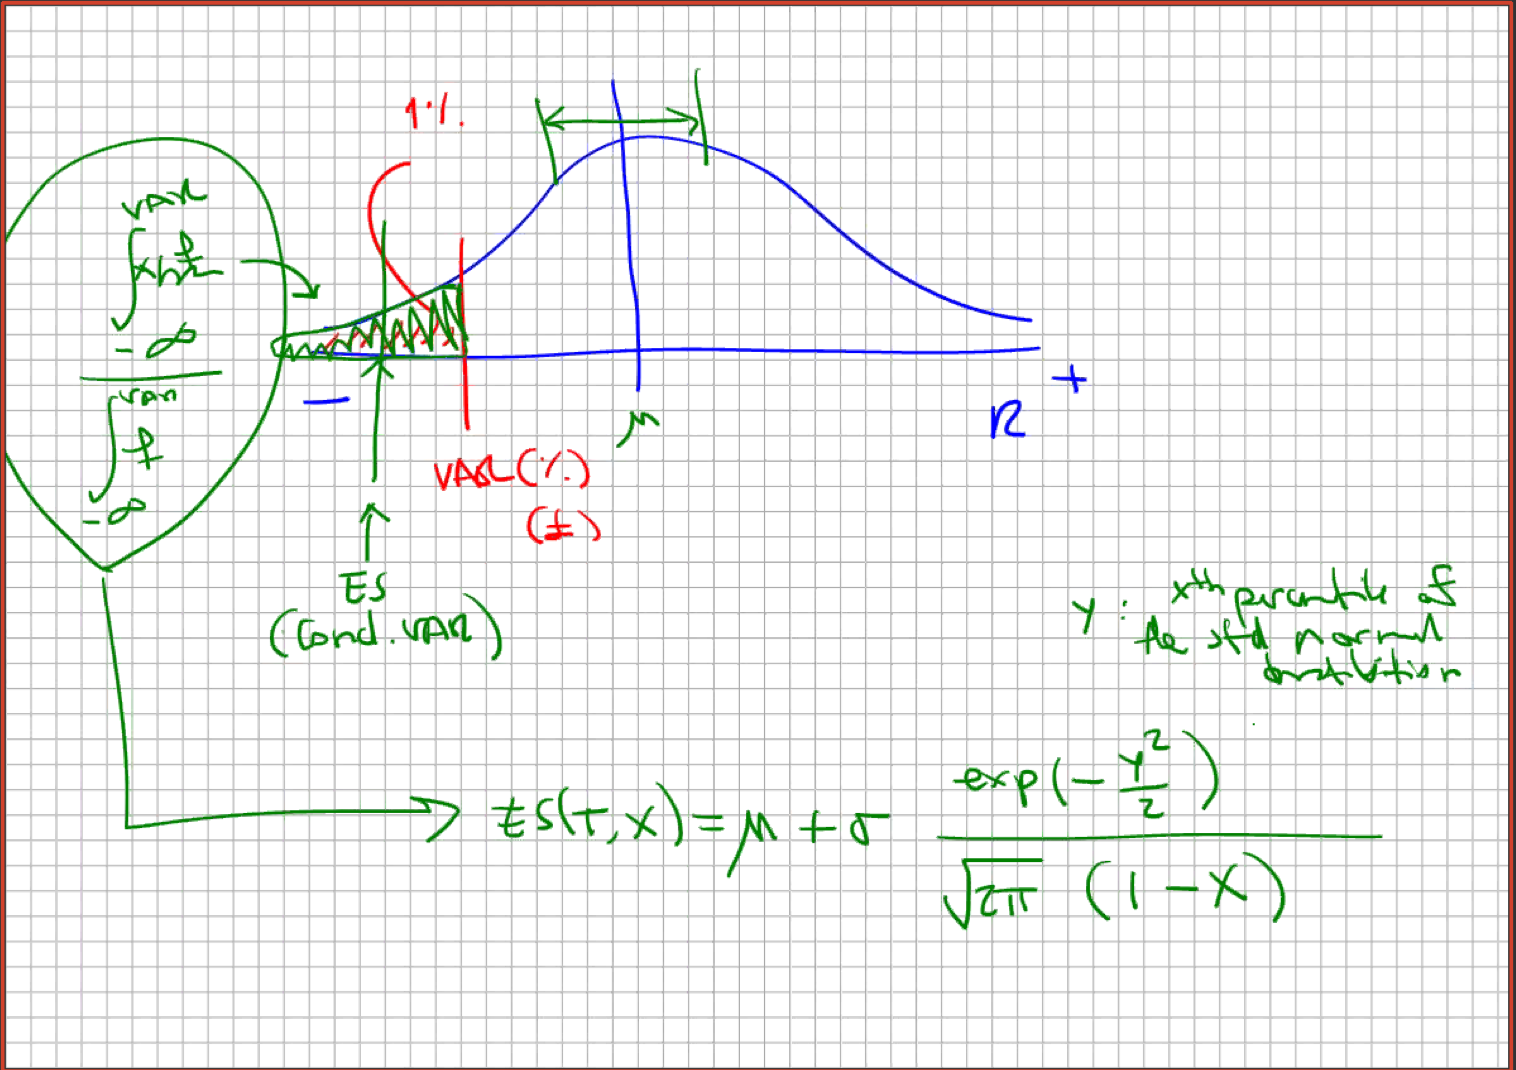 1%
VAR
∫ x f
-∞
VAR
∫ f
-∞
−
μ
+
R
VAR(%)
(±)
ES
(Cond. VAR)
Y: Xth percentile of
the std normal
distribution
ES(T, X) = μ + σ exp(-Y²/2) / √2π (1-X)